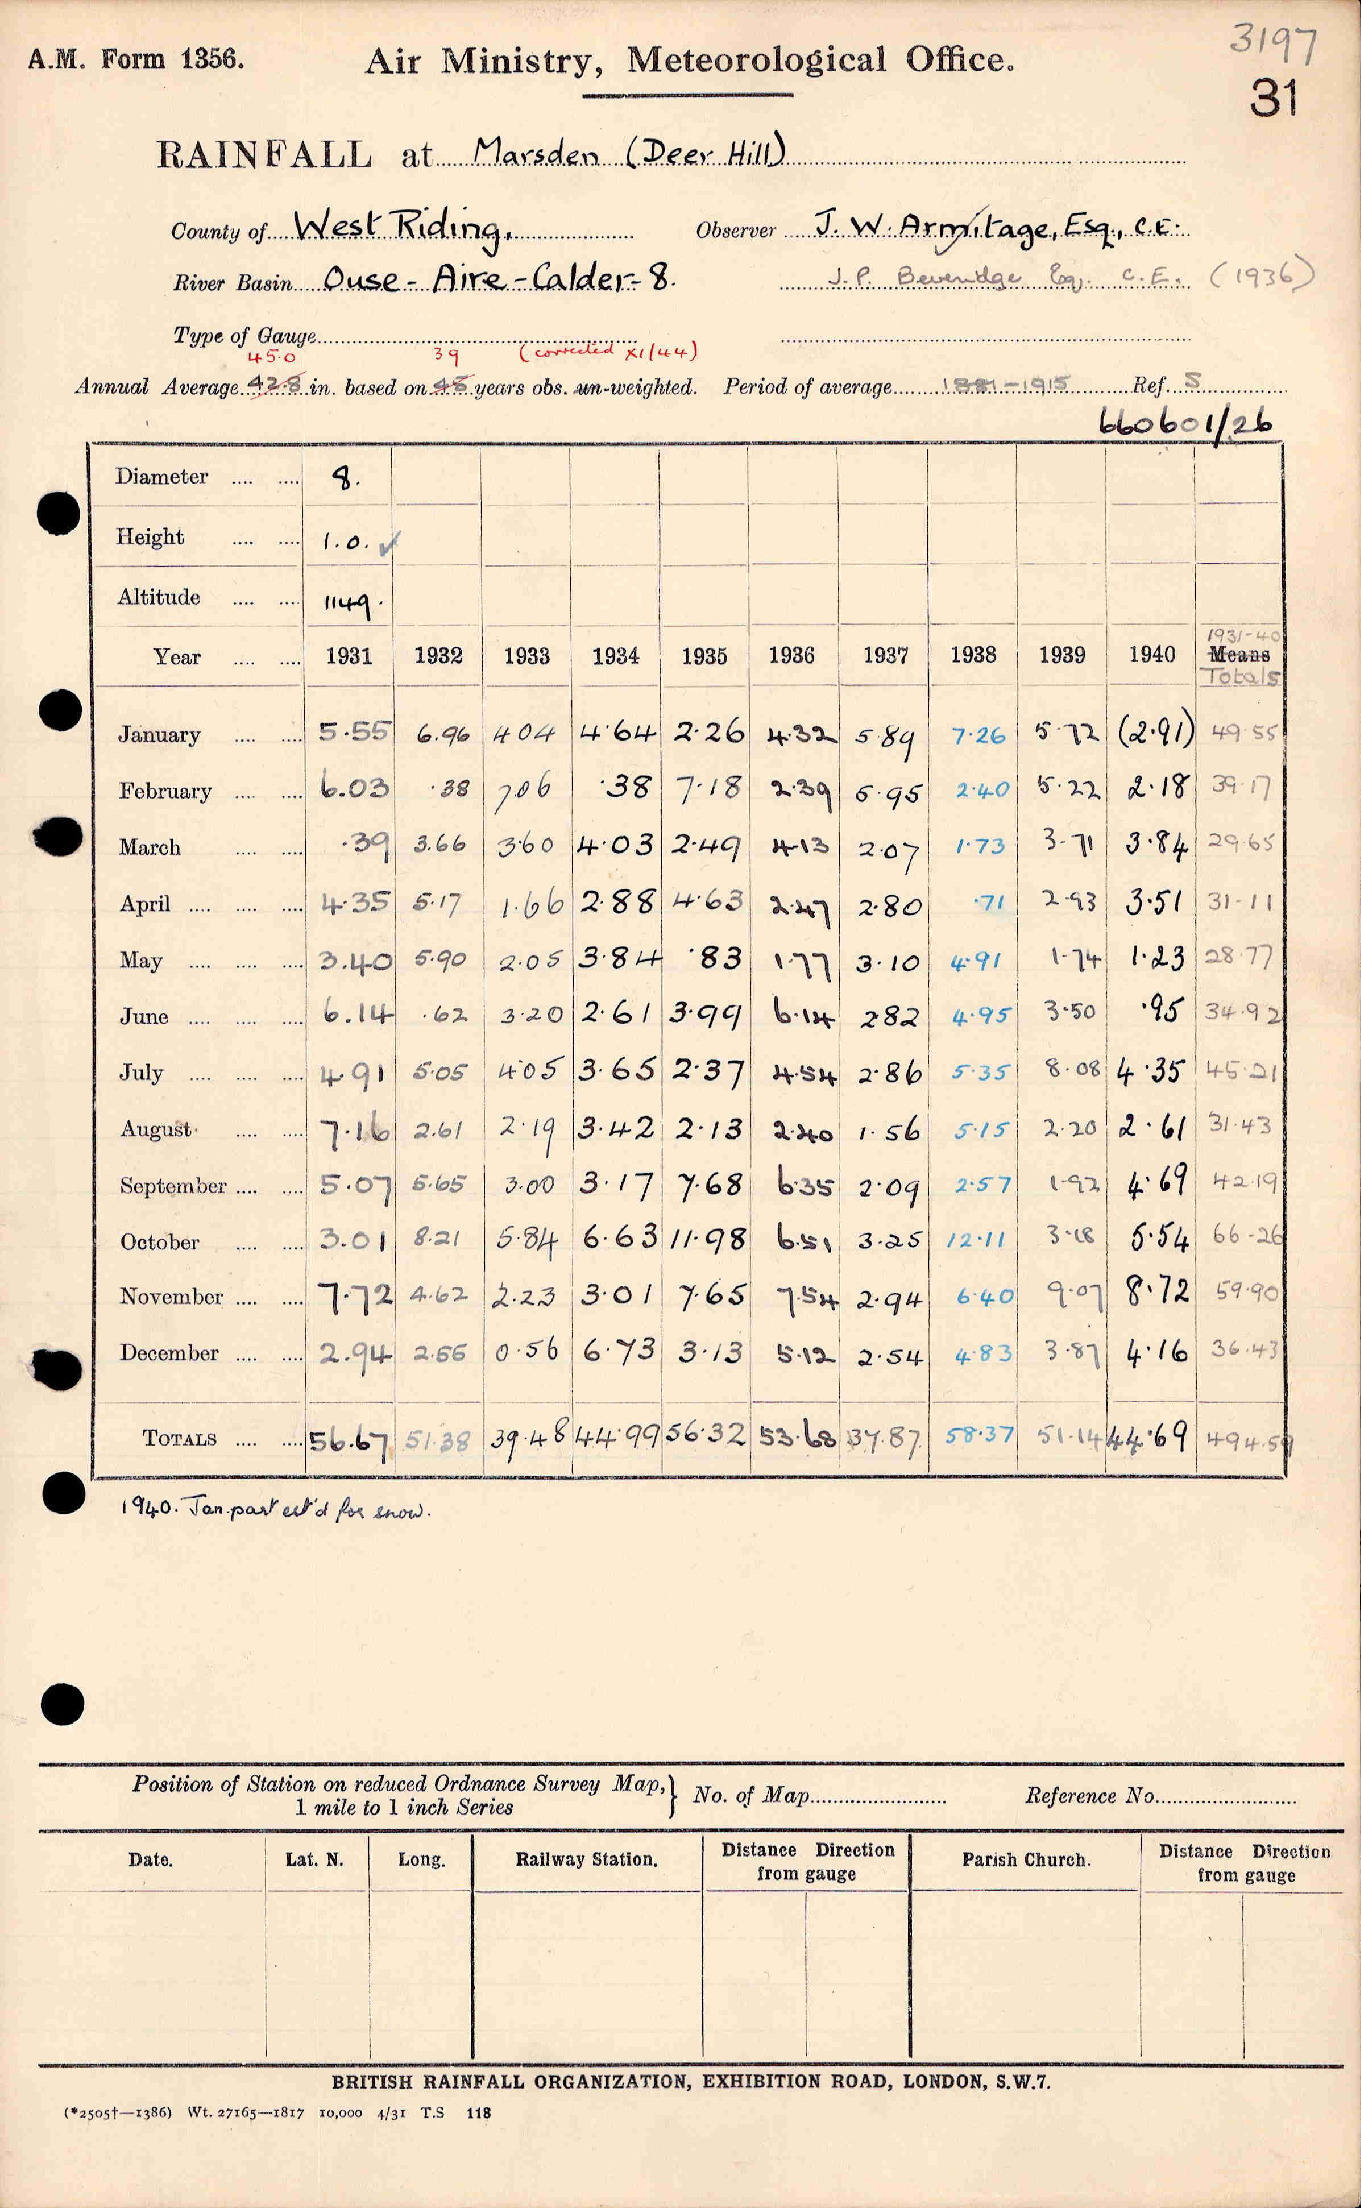 3197
A.M. Form 1356. Air Ministry, Meteorological Office.
31
RAINFALL at Marsden (Deer Hill)
County of West Riding. Observer J. W. Armitage, Esq., C.E.
River Basin Ouse - Aire - Calder - 8. J. P. Beveridge Esq. C.E. (1936)
Type of Gauge
45.0 39 (corrected XI/44)
Annual Average 42.8 in. based on 48 years obs. un-weighted. Period of average 1881-1915 Ref. S
660601/26
Diameter .... .... 8.
Height .... .... 1.0. ✓
Altitude .... .... 1149.
1931-40
Year .... .... 1931 1932 1933 1934 1935 1936 1937 1938 1939 1940 Means
Totals
January .... .... 5.55 6.96 4.04 4.64 2.26 4.32 5.89 7.26 5.72 (2.91) 49.55
February .... .... 6.03 .38 7.06 .38 7.18 2.39 5.95 2.40 5.22 2.18 39.17
March .... .... .39 3.66 3.60 4.03 2.49 4.13 2.07 1.73 3.71 3.84 29.65
April .... .... .... 4.35 5.17 1.66 2.88 4.63 2.47 2.80 .71 2.93 3.51 31.11
May .... .... .... 3.40 5.90 2.05 3.84 .83 1.77 3.10 4.91 1.74 1.23 28.77
June .... .... .... 6.14 .62 3.20 2.61 3.99 6.14 2.82 4.95 3.50 .95 34.92
July .... .... .... 4.91 5.05 4.05 3.65 2.37 4.54 2.86 5.35 8.08 4.35 45.21
August .... .... 7.16 2.61 2.19 3.42 2.13 2.40 1.56 5.15 2.20 2.61 31.43
September .... .... 5.07 5.65 3.00 3.17 7.68 6.35 2.09 2.57 1.92 4.69 42.19
October .... .... 3.01 8.21 5.84 6.63 11.98 6.51 3.25 12.11 3.18 5.54 66.26
November .... .... 7.72 4.62 2.23 3.01 7.65 7.54 2.94 6.40 9.07 8.72 59.90
December .... .... 2.94 2.55 0.56 6.73 3.13 5.12 2.54 4.83 3.87 4.16 36.43
TOTALS .... .... 56.67 51.38 39.48 44.99 56.32 53.68 37.87 58.37 51.14 44.69 494.59
1940. Jan. part est'd for snow.
Position of Station on reduced Ordnance Survey Map, } No. of Map Reference No.
1 mile to 1 inch Series
Date. Lat. N. Long. Railway Station. Distance Direction from gauge Parish Church. Distance Direction from gauge
BRITISH RAINFALL ORGANIZATION, EXHIBITION ROAD, LONDON, S.W.7.
(*2505†—1386) Wt. 27165—1817 10,000 4/31 T.S 118